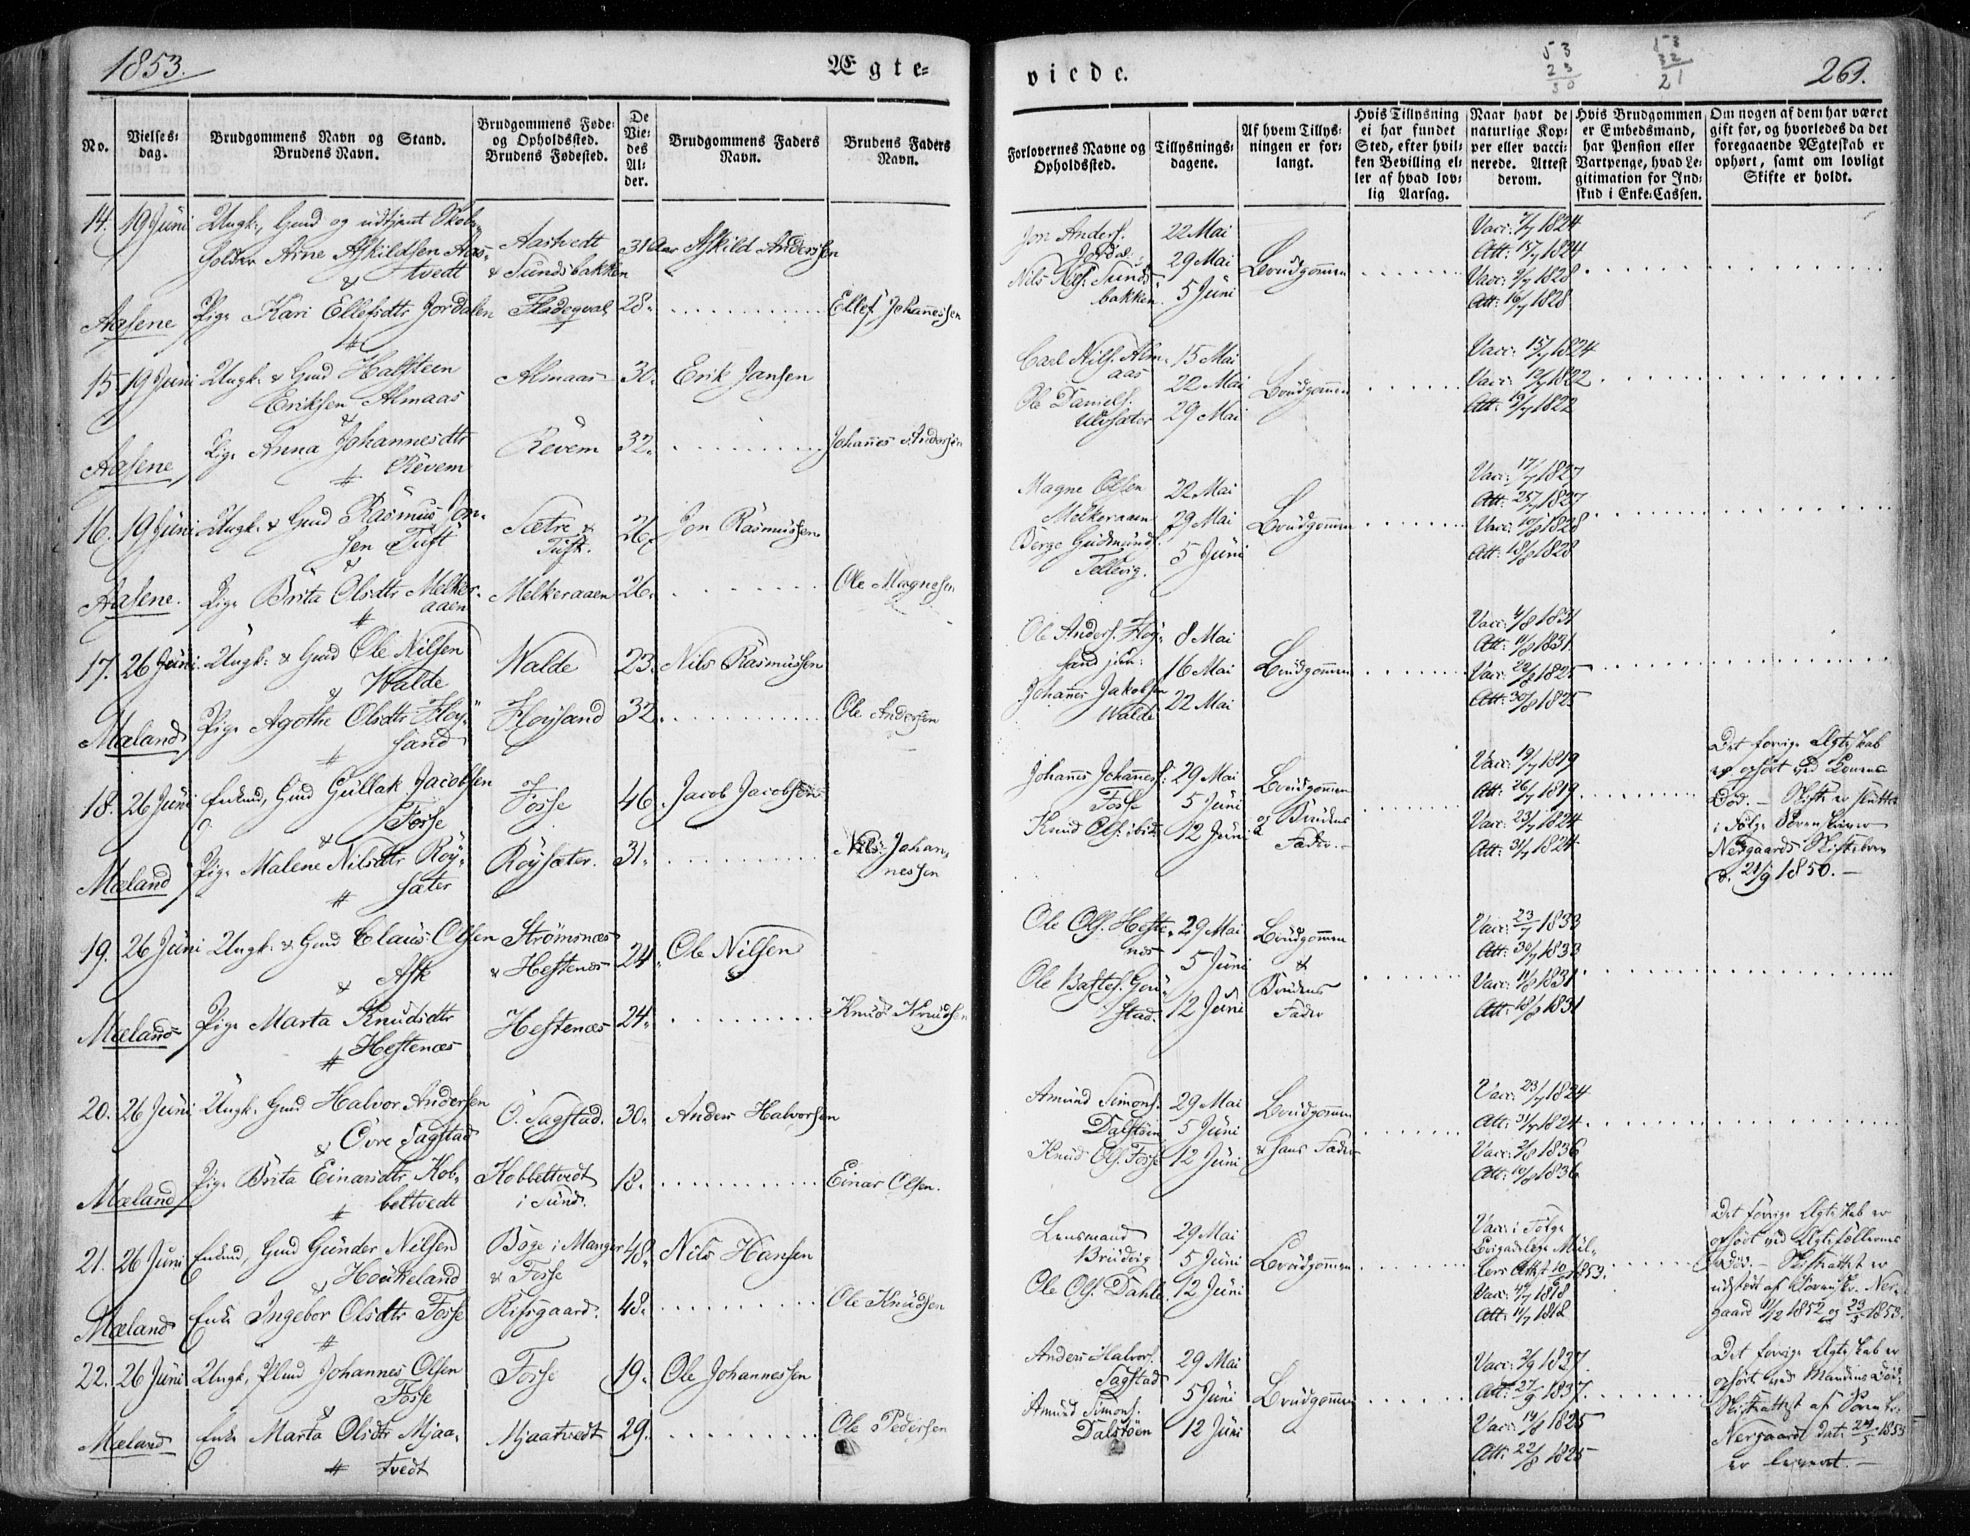 1853.
Ægte-
viede.
53
23
30
53
32
21
269.
No.
Vielses-
dag.
Brudgommens Navn og Stand.
Brudens Navn.
Brudgommens Føde-
og Opholdssted.
Brudens Fødested.
De
Vie-
des
Al-
der.
Brudgommens Faders
Navn.
Brudens Faders
Navn.
Forlovernes Navne og
Opholdssted.
Tillysnings-
dagene.
Af hvem Tillys-
ningen er for-
langt.
Hvis Tillysning
ei har fundet
Sted, efter hvil-
ken Bevilling el-
ler af hvad lov-
lig Aarsag.
Naar havt de
naturlige Kop-
per eller vacci-
nerede. Attest
derom.
Hvis Brudgommen
er Embedsmand,
har Pension eller
Vartpenge, hvad Le-
gitimation for Ind-
skud i Enke-Cassen.
Om nogen af dem har været
gift for, og hvorledes da det
foregaaende Ægteskab er
ophørt, samt om lovligt
Skifte er holdt.
14. 19 Juni Ungk., Gmd og udtjent
Arne Askildsen Aas-
tvedt
&
Aastvedt
& Sundsbakken
31 Aar Askild Anderssen
Jon Anders.
Jordal
Nils Sunds
bakken
22 Mai
29 Mai
5 Juni
Brudgommen
Vacc: 7/7 1824
Att: 15/7 1824
Vacc: 9/7 1828
Att: 16/7 1828
Aasene Pige Kari Ellefsdtr Jordalen Fladeqval 28. Ellef Johannessen
15. 19 Juni Ungk. & Gmd Halsteen
Eriksen Almaas
&
Almaas 30. Erik Jansen
Carl Nils. Alm-
aas
Ole Daniels.
Ulvsæter
15 Mai
22 Mai
29 Mai
Brudgommen
Vacc: 15/7 1824
Vacc: 12/7 1822
Att: 19/7 1822
Aasene Pige Anna Johannesdtr
Revem
Revem 32. Johannes Andersen
16. 19 Juni Ungk. & Gmd Rasmus Jon-
sen Tuft
&
Sætre &
Tuft.
26. Jon Rasmussen
Magne Olsen
Melkeraaen
Børge Gudmunds.
Tellevig.
22 Mai
29 Mai
5 Juni
Brudgommen
Vacc: 17/7 1827
Att: 25/7 1827
Vacc: 10/8 1828
Att: 18/8 1828
Aasene. Pige Brita Olsdtr Melker-
aaen
Melkeraaen 26. Ole Magnesen
17. 26 Juni Ungk. & Gmd Ole Nilsen
& Walde
Walde 23. Nils Rasmussen
Ole Anders. Fløy-
sand jun:
Johannes Jakobsen
Walde
8 Mai
16 Mai
22 Mai
Brudgommen
Vacc: 4/8 1831
Att: 11/8 1831
Vacc: 22/8 1825
Att: 30/8 1825
Mæland Pige Agothe Olsdtr Fløy-
sand
Fløysand 32. Ole Andersen
18. 26 Juni Enkmd, Gmd Gullak Jacobsen
& Fosse
Fosse 46. Jacob Jacobsen
Johannes Johanness:
Fosse
Knud Ols. ibid
29 Mai
5 Juni
12 Juni
Brudgommen
og Brudens
Fader.
Vacc: 19/7 1819
Att: 26/7 1819
Vacc: 23/7 1824
Att: 31/7 1824
Det forrige Ægteskab
er ophørt ved Konens
Død. – Skifte er sluttet
i Følge Sorenskriver
Nergaards Skiftebrev
d. 21/9 1850. –
Mæland Pige Malene Nilsdtr Røy-
sæter
Røysæter. 31. Nils Johan-
nessen
19. 26 Juni Ungk. & Gmd Claus Olsen
& Ask
Strømsnæs
& Hestenæs
24. Ole Nilsen
Ole Ols. Heste-
næs
Ole
stad.
29 Mai
5 Juni
12 Juni
Brudgommen
&
Brudens
Fader
Vacc: 23/7 1833
Att: 30/7 1833
Vacc: 11/8 1831
Att: 18/8 1831
Mæland Pige Marta Knudsdtr
Hestenæs
Hestenæs 24. Knud Knudsen
20. 26 Juni Ungk. Gmd Halvor Andersen
& Øvre Sagstad
Ø. Sagstad. 30. Anders Halvorsen
Amund Simons.
Dalstøen
Knud Ols. Fosse
29 Mai
5 Juni
12 Juni
Brudgommen
& hans Fader
Vacc: 23/7 1824
Att: 31/7 1824
Vacc: 2/8 1836
Att: 10/8 1836
Mæland Pige Brita Einarsdtr Kob-
beltvedt
Kobbeltvedt
i Sund.
18. Einar Olsen.
21. 26 Juni Enkmd, Gmd Gunder Nilsen
& Houkeland
Bøge i Manger
& Fosse
48. Nils Hansen
Lensmand
Breidvig
Ole Ols. Dahle
29 Mai
5 Juni
12 Juni
Brudgommen
Vacc: i Følge
Brigadelæge Møl-
lers Attest 10/6 1853.
Vacc: 4/7 1818
Att: 11/7 1818
Det forrige Ægteskab er
ophørt ved Ægtefællernes
Død. – Skifteattest er
udstædt af Sorenskr. Ner-
gaard 11/2 1852 og 23/5 1853.
Mæland Enke Ingebor Olsdtr Fosse Risgaard. 48. Ole Knudsen
22. 26 Juni Ungk, Plmd Johannes Olsen
Fosse
&
Fosse 19. Ole Johannessen
Anders Halvors.
Sagstad
Amund Simons.
Dalstøen
29 Mai
5 Juni
12 Juni
Brudgommen
Vacc: 1837.
Att: 27/9 1837.
Vacc: 14/8 1825
Att: 22/8 1825
Det forrige Ægteskab er
ophørt ved Mandens Død.
Skifteattest af Sorenskr.
Nergaard dat: 24/5 1853
er leveret. –
Mæland Enke Marta Olsdtr Mjaa-
tvedt
Mjaatvedt 29. Ole Pedersen